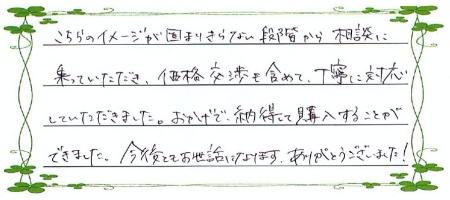 こちらのイメージが固まりきらない段階から相談に
乗っていただき、価格交渉も含めて、丁寧に対応
していただきました。おかげで、納得して購入することが
できました。今後ともお世話になります。ありがとうございました!